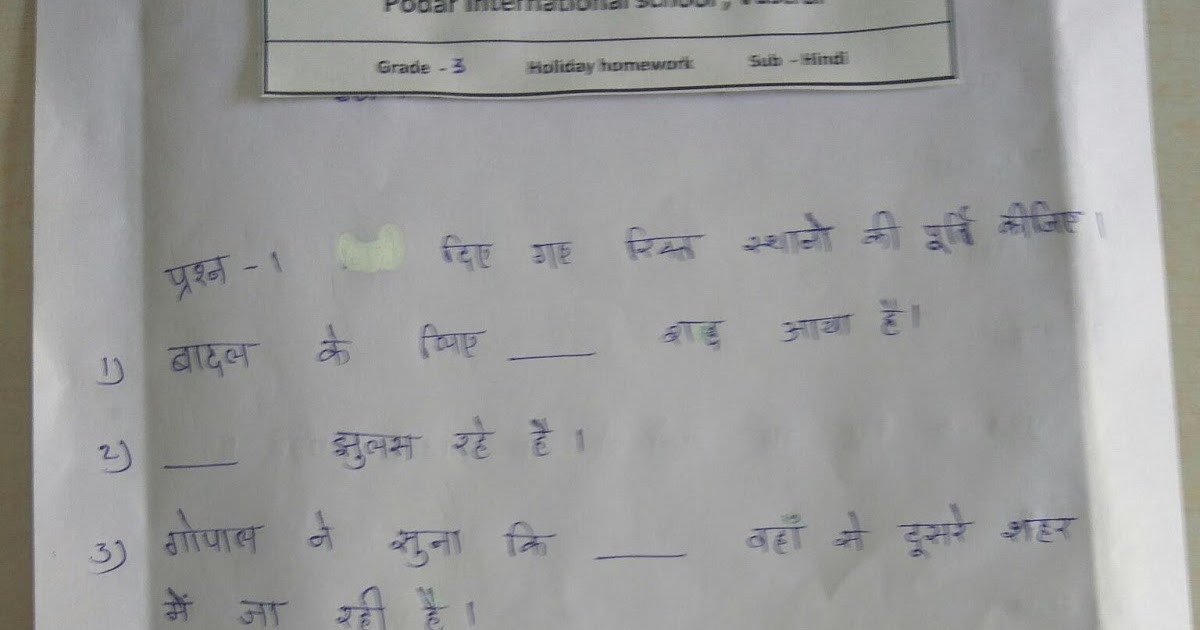 Podar International School,
Grade - 3 Holiday homework Sub - Hindi
प्रश्न - 1 दिए गए रिक्त स्थानो की पूर्ति कीजिए।
1) बादल के लिए ____ शब्द आया है।
2) ____ झुलस रहे है।
3) गोपाल ने सुना कि ____ वहाँ से दूसरे शहर
में जा रही है।